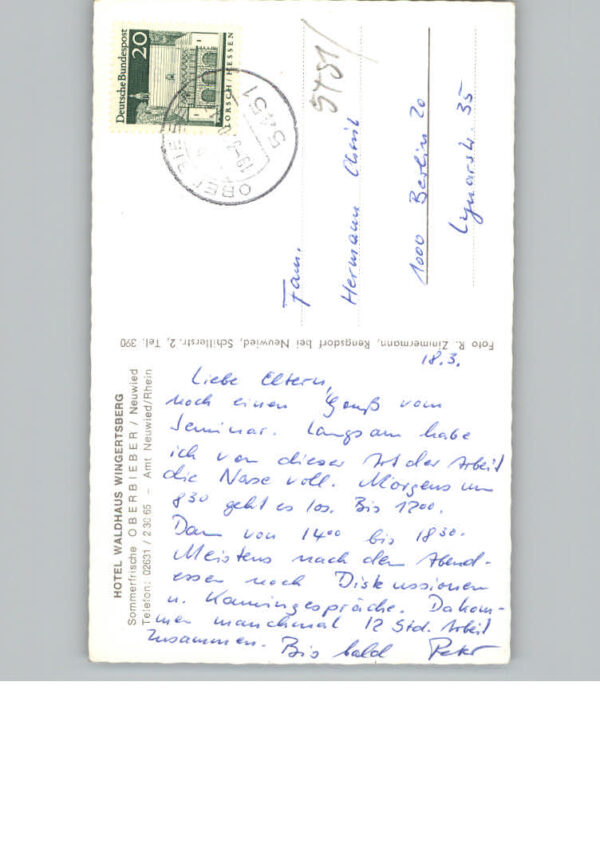 Deutsche Bundespost
20
LORSCH/HESSEN
5451
5451
Fam.
Hermann
1000 Berlin 20
Lynarstr. 35
Foto R. Zimmermann, Rengsdorf bei Neuwied, Schillerstr. 2, Tel. 390
HOTEL WALDHAUS WINGERTSBERG
Sommerfrische OBERBIEBER / Neuwied
Telefon: 02631 / 2 30 65 - Amt Neuwied/Rhein
18.3.
Liebe Eltern,
noch einen Gruß vom
Seminar. Langsam habe
ich von dieser Art der Arbeit
die Nase voll. Morgens um
8 30 geht es los. Bis 12 00.
Dann von 14 00 bis 18 30.
Meistens nach dem Abend-
essen noch Diskussionen
u. Kamingespräche. Da kom-
men manchmal 12 Std. Arbeit
zusammen. Bis bald Peter